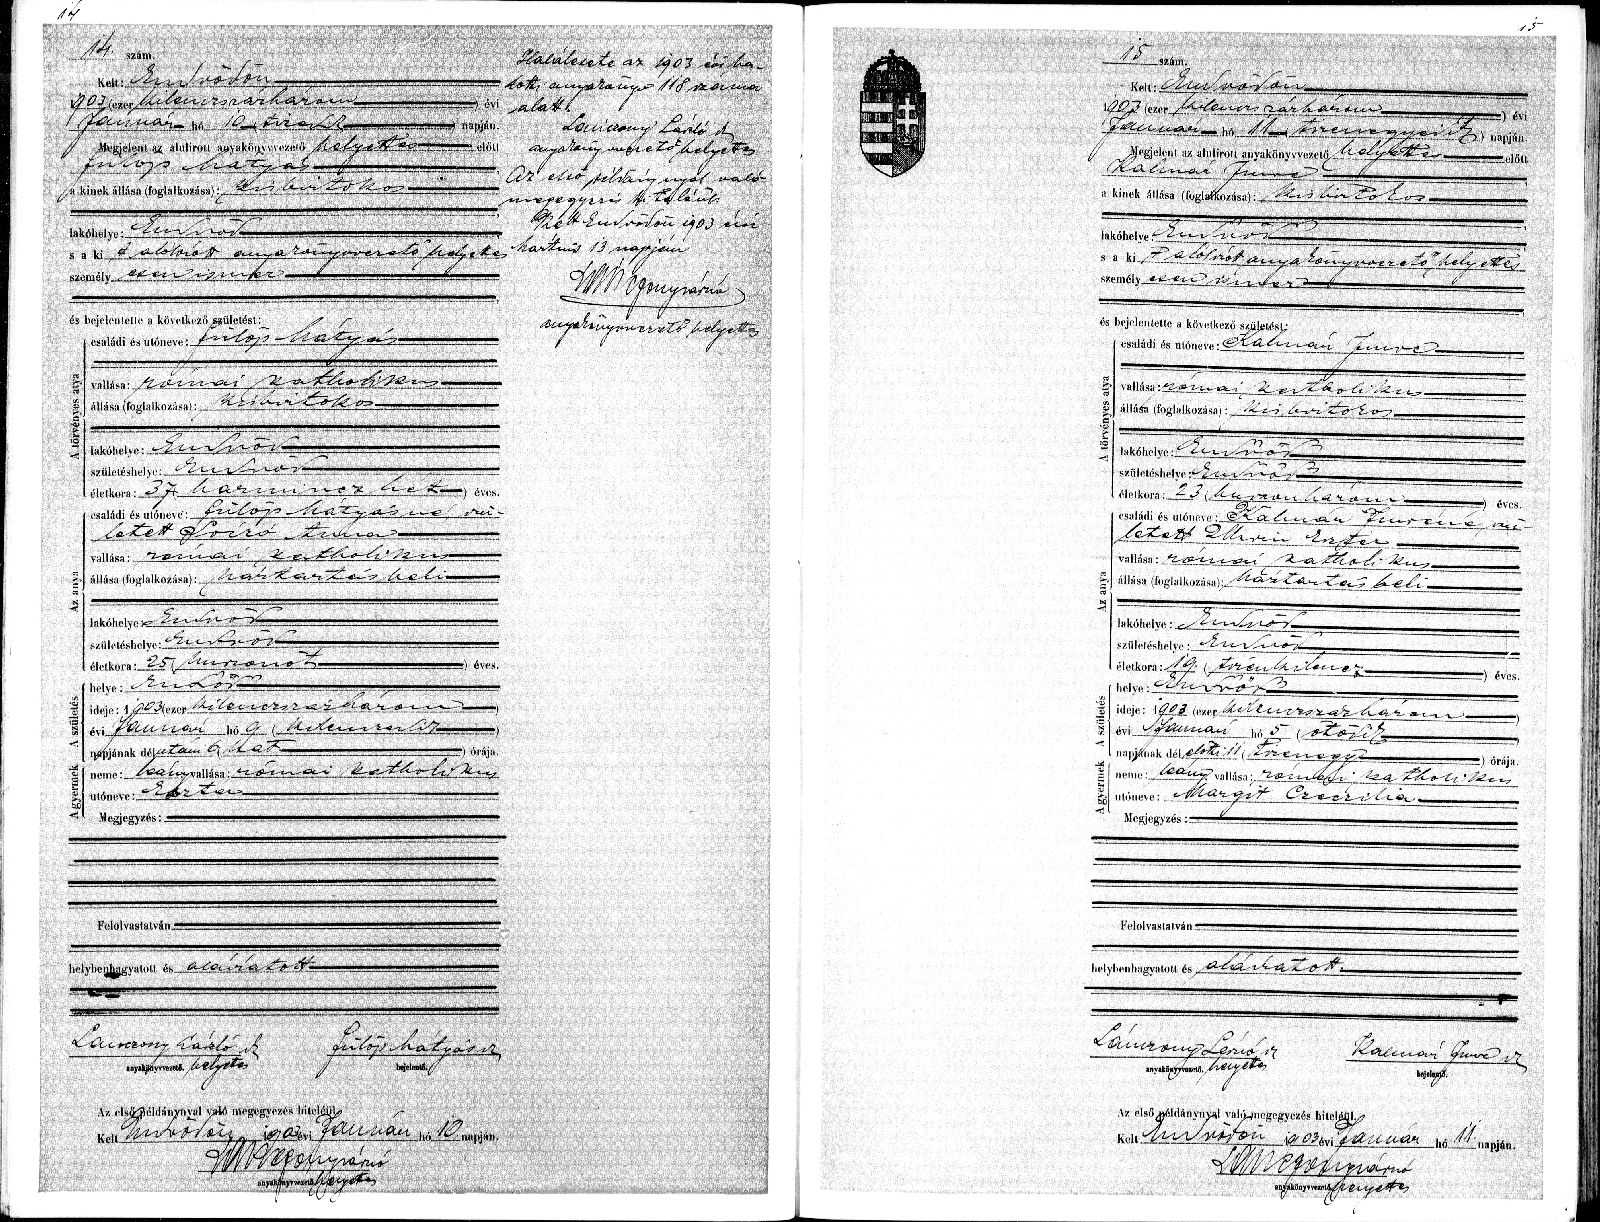 14
14. szám.
Kelt: Endrődön
1903 (ezer kilenczszázhárom) évi
Január hó 10 tizedik napján.
Megjelent az alulirott anyakönyvvezető helyettes előtt
Fülöp Mátyás
a kinek állása (foglalkozása): kisbirtokos
lakóhelye: Endrőd
s a ki t alólirott anyakönyvvezető helyettes
személy esen ismer
és bejelentette a következő születést:
A törvényes atya
családi és utóneve: Fülöp Mátyás
vallása: római katholikus
állása (foglalkozása): kisbirtokos
lakóhelye: Endrőd
születéshelye: Endrőd
életkora: 37 (harmincz hét) éves.
Az anya
családi és utóneve: Fülöp Mátyásné, szü-
letett Anna
vallása: római katholikus
állása (foglalkozása): háztartásbeli
lakóhelye: Endrőd
születéshelye: Endrőd
életkora: 25 (huszonöt) éves.
A születés
helye: Endrőd
ideje: 1903 (ezer kilenczszázhárom)
évi Január hó 9 (kilenczedik)
napjának dél utan 6 (hat) órája.
A gyermek
neme: leány vallása: római katholikus
utóneve: Eszter
Megjegyzés:
Felolvastatván
helybenhagyatott és aláíratott
László Fülöp Mátyás
anyakönyvvezető. helyettes bejelentő.
Az első példánynyal való megegyezés hiteléül.
Kelt Endrődön 1903 évi Január hó 10 napján.
anyakönyvvezető. helyettes
Halálesete az 1903 évi ha-
lotti anyakönyv 118 száma
alatt.
László
anyakönyvvezető helyettes
Az első példánynyal való
megegyezés hiteléül.
Kelt Endrődön 1903 évi
13 napján
anyakönyvvezető helyettes
15
15 szám.
Kelt: Endrődön
1903 (ezer kilenczszázhárom) évi
Január hó 11 tizenegyedik napján.
Megjelent az alulirott anyakönyvvezető helyettes előtt
Kálmán Imre
a kinek állása (foglalkozása): kisbirtokos
lakóhelye: Endrőd
s a ki t alólirott anyakönyvvezető helyettes
személy esen ismer
és bejelentette a következő születést:
A törvényes atya
családi és utóneve: Kálmán Imre
vallása: római katholikus
állása (foglalkozása): kisbirtokos
lakóhelye: Endrőd
születéshelye: Endrőd
életkora: 23 (huszonhárom) éves.
Az anya
családi és utóneve: Kálmán Imréné, szü-
letett Eszter
vallása: római katholikus
állása (foglalkozása): háztartásbeli
lakóhelye: Endrőd
születéshelye: Endrőd
életkora: 19 (tizenkilencz) éves.
A születés
helye: Endrőd
ideje: 1903 (ezer kilenczszázhárom)
évi Január hó 5 (ötödik)
napjának dél előtti 11 (tizenegy) órája.
A gyermek
neme: leány, vallása: római katholikus
utóneve: Margit Czeczilia
Megjegyzés:
Felolvastatván
helybenhagyatott és aláíratott
László Kálmán Imre
anyakönyvvezető. helyettes bejelentő.
Az első példánynyal való megegyezés hiteléül.
Kelt Endrődön 1903 évi Január hó 11 napján.
anyakönyvvezető. helyettes